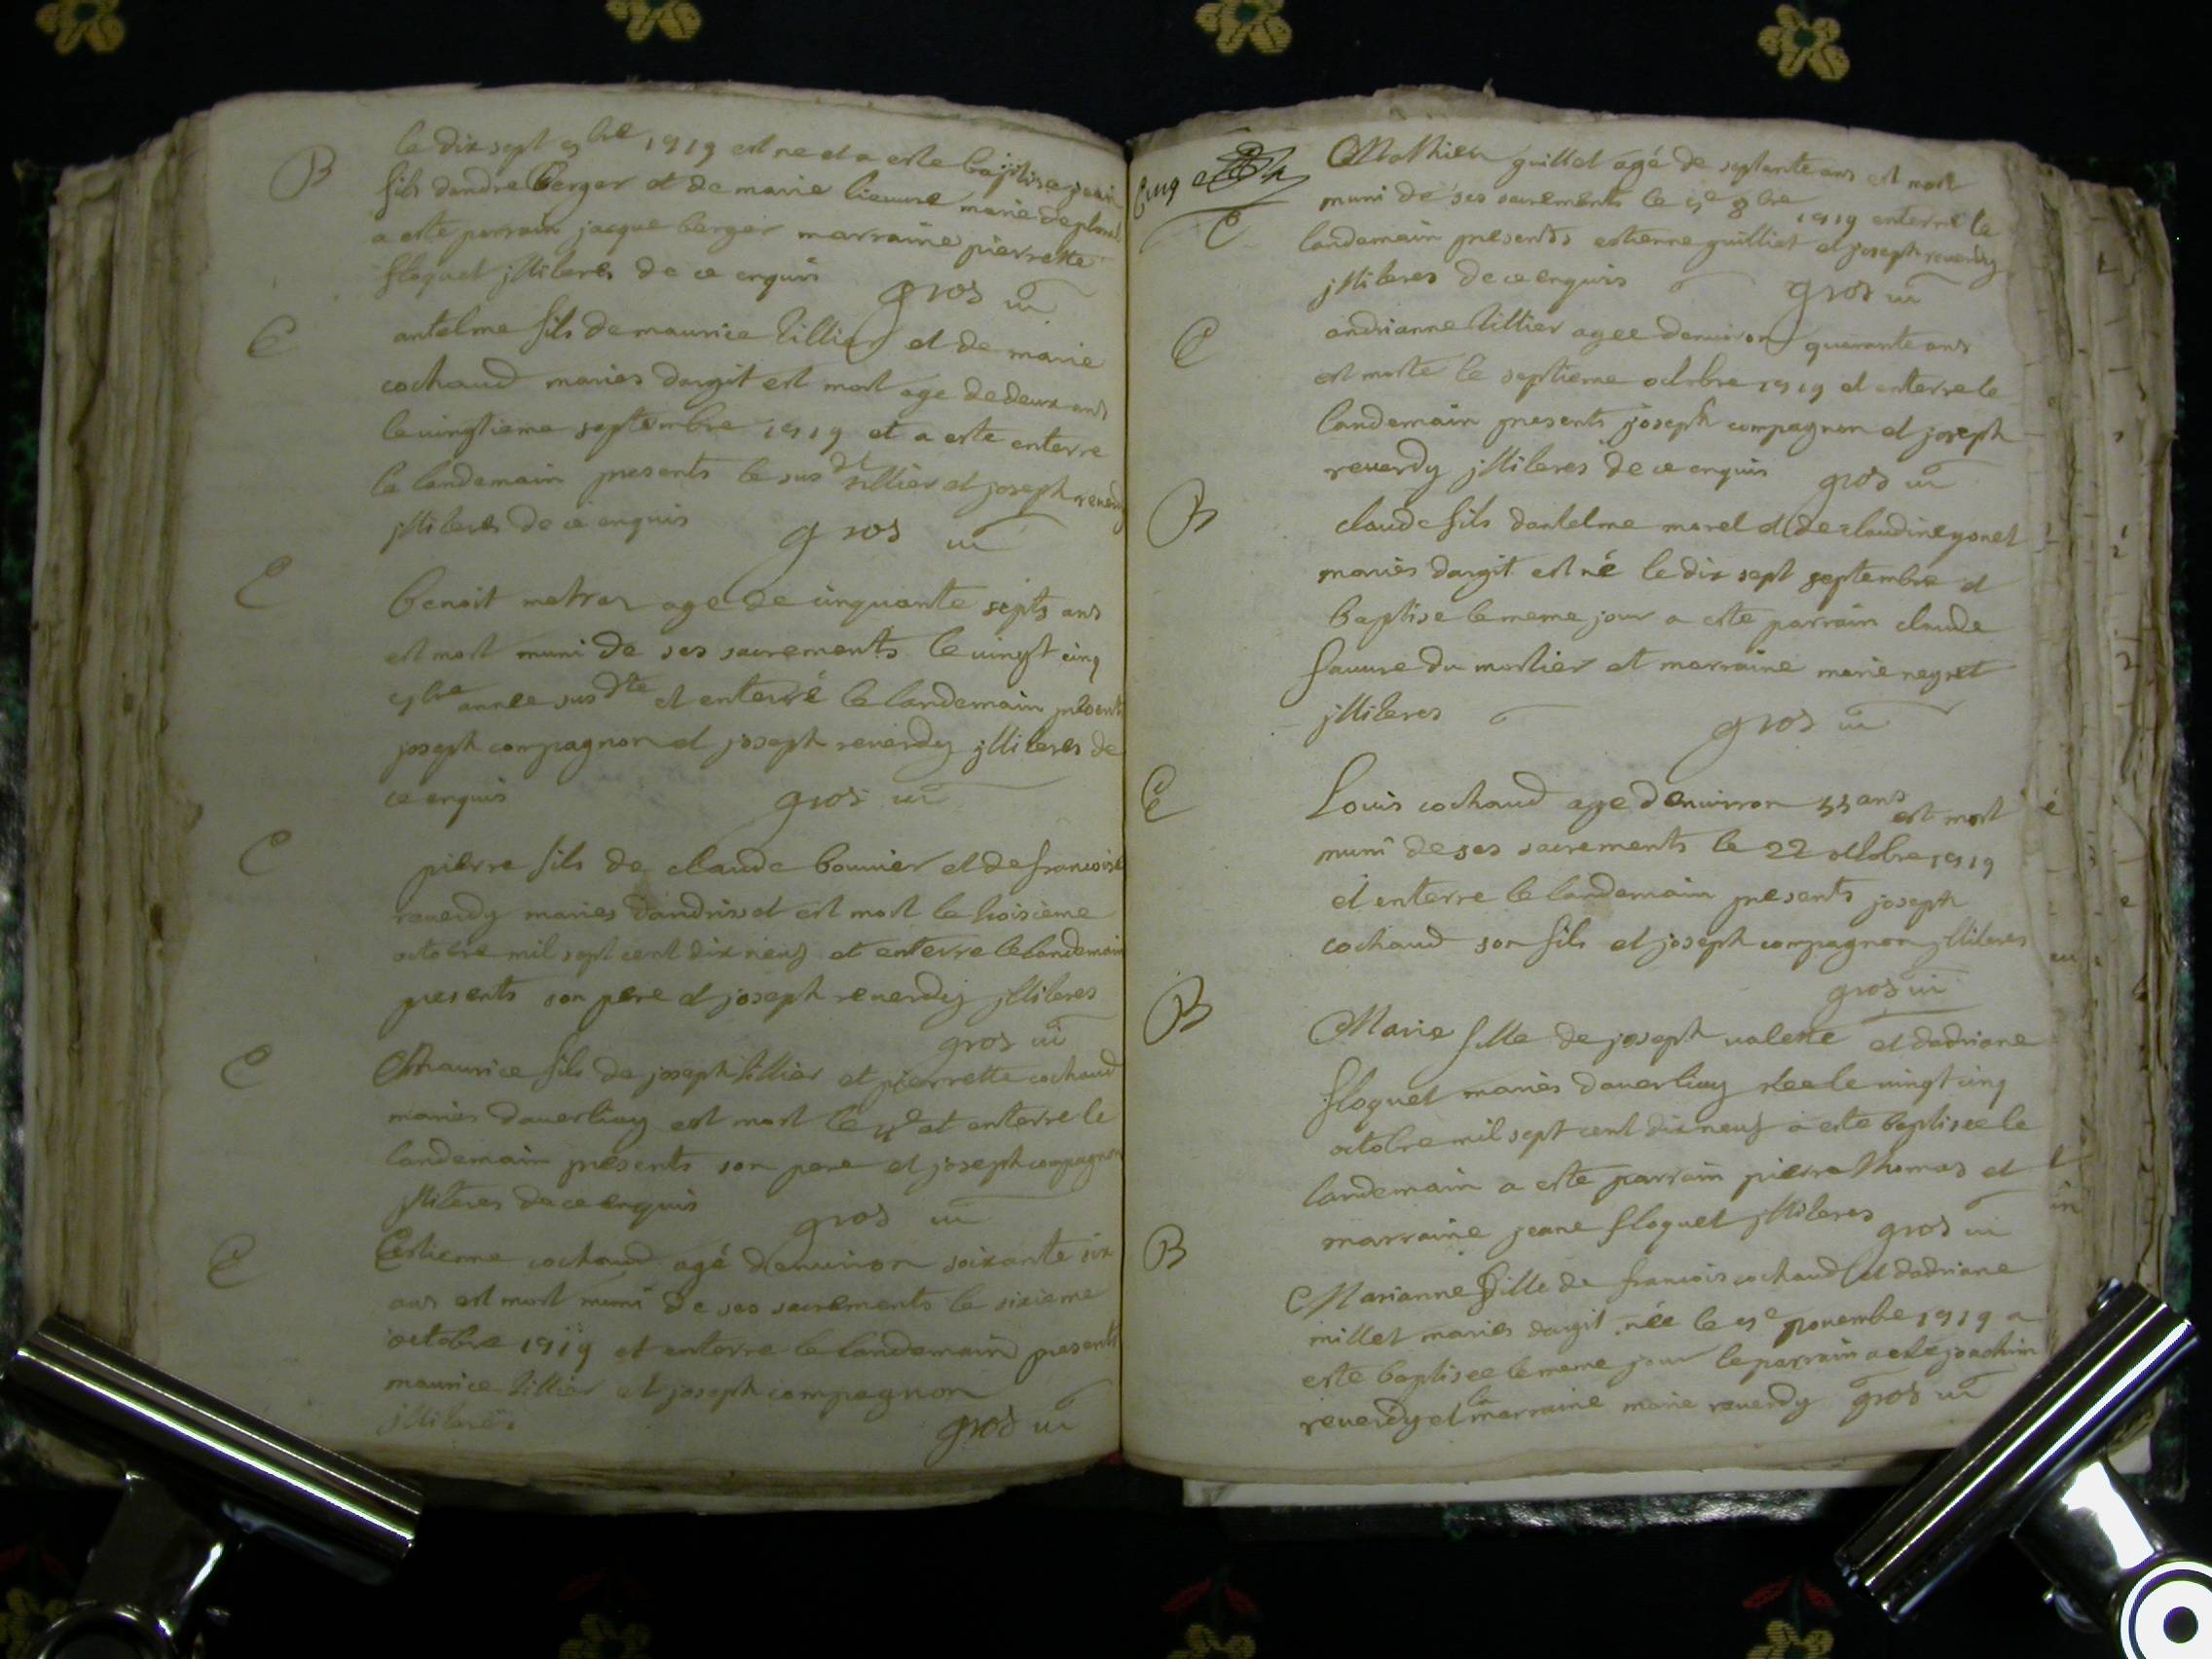 B
le dix sept 7bre 1719 est ne et a este baptise jean
fils dandre Berger et de marie lieuure marie
a este parrain jacque berger marraine pierrette
floquet jlliteres de ce enquis
gros uic
E
antelme fils de maurice Tillier et de marie
cochaud maries dargit est mort age de deux ans
le uingtieme septembre 1719 et a este enterre
le landemain presents le susdt tillier et joseph reuerdy
jlliteres de ce enquis
gros uic
E
Benoit metras age de cinquante septs ans
est mort muni de ses sacrements le uingt cinq
7bre annee susdte et enterré le landemain presents
joseph compagnon et joseph reuerdy jlliteres de
ce enquis
gros uic
E
pierre fils de claude bouuier et de francoise
reuerdy maries dandrisset est mort le troisième
octobre mil sept cent dix neuf et enterre le landemain
presents son pere et joseph reuerdy jlliteres
gros uic
E
Maurice fils de joseph tillier et pierrette cochaud
maries dauerliay est mort le 4e et enterre le
landemain presents son pere et joseph compagnon
jlliteres de ce enquis
gros uic
E
Estienne cochaud agé denuiron soixante six
ans est mort muni de ses sacrements le sixieme
octobre 1719 et enterre le landemain presents
maurice tillier et joseph compagnon
jlliteres
gros uic
Cinq
E
Mathieu guillet agé de septante ans est mort
muni de ses sacrements le 7e 8bre 1719 enterré le
landemain presents estienne guilliet et joseph reuerdy
jlliteres de ce enquis
gros uic
E
andrianne tillier agee denuiron quarante ans
est morte le septieme octobre 1719 et enterre le
landemain presents joseph compagnon et joseph
reuerdy jlliteres de ce enquis
gros uic
B
claude fils dantelme morel et de claudine yonet
mariés dargit est né le dix sept septembre et
baptise le meme jour a este parrain claude
fauure du mortier et marraine marie neyret
jlliteres
gros uic
E
Louis cochaud age denuirron 55 ans est mort
muni de ses sacrements le 22 octobre 1719
et enterre le landemain presents joseph
cochaud son fils et joseph compagnon jlliteres
gros uic
B
Marie fille de joseph ualette et dadriane
floquet mariés dauerliay née le uingt cinq
octobre mil sept cent dix neuf a este baptisee le
landemain a este parrain pierre thomas et
marraine jeane floquet jlliteres
gros uic
B
Marianne fille de francois cochaud et dadriane
millet maries dargit née le 7e nouembre 1719 a
este baptisee le meme jour le parrain a este joachim
reuerdy et la marraine marie reuerdy gros uic